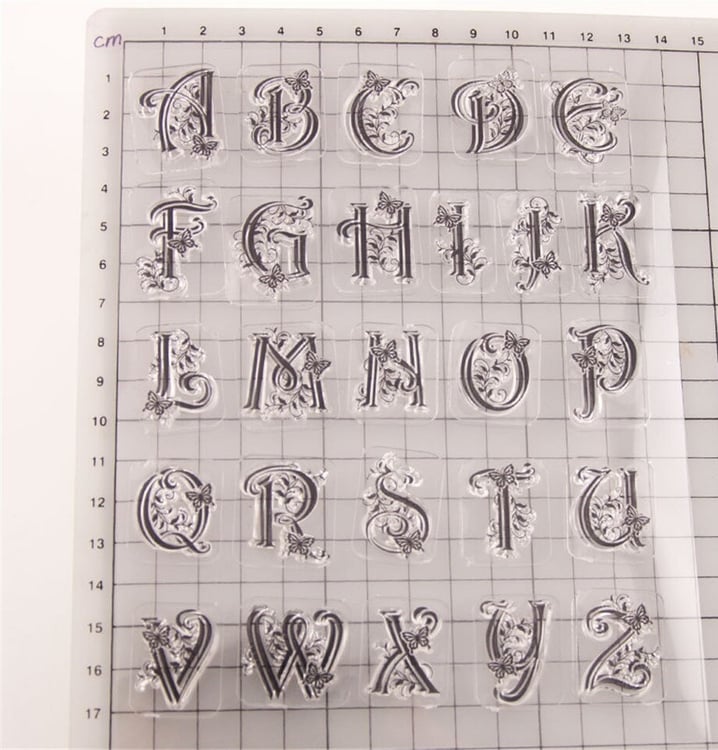 1 2 3 4 5 6 7 8 9 10 11 12 13 14 15
cm
1
A B C D E
2
3
4
F G H I J K
5
6
7
8
L M N O P
9
10
11
Q R S T U
12
13
14
15
V W X Y Z
16
17